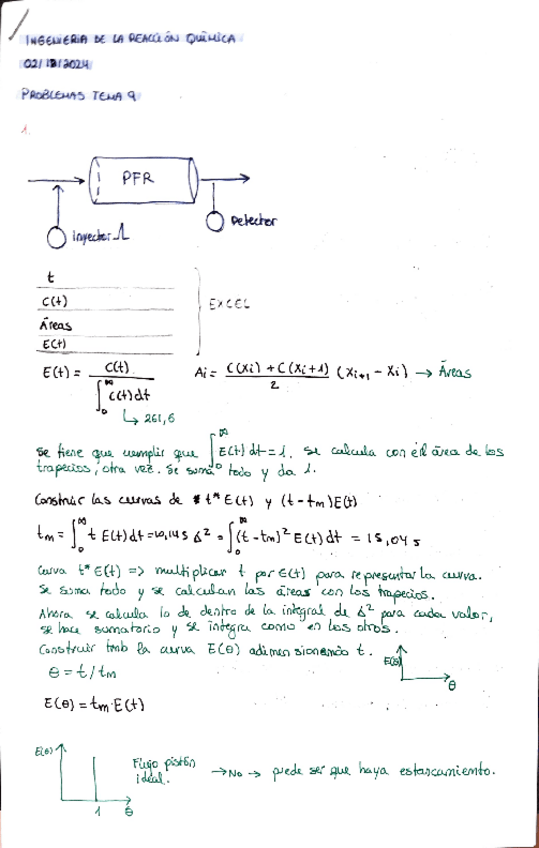 INGENIERÍA DE LA REACCIÓN QUÍMICA
02/12/2024
PROBLEMAS TEMA 9
1.
PFR
Inyector
Detector
t
C(t)
Áreas
E(t)
EXCEL
E(t) = C(t) / ∫₀^∞ C(t) dt
Ai = (C(xi) + C(xi+1)) / 2 (xi+1 - xi) → Áreas
↳ 261,6
Se tiene que cumplir que ∫₀^∞ E(t) dt = 1. Se calcula con el área de los
trapecios, otra vez. Se suma todo y da 1.
Construir las curvas de t* E(t) y (t - tm) E(t)
tm = ∫₀^∞ t E(t) dt = 10,14 s
б² = ∫₀^∞ (t - tm)² E(t) dt = 15,04 s
Curva t* E(t) => multiplicar t por E(t) para representar la curva.
Se suma todo y se calculan las áreas con los trapecios.
Ahora se calcula lo de dentro de la integral de б² para cada valor,
se hace sumatorio y se integra como en los otros.
Construir tmb la curva E(θ) adimensionando t.
E(θ)
θ
θ = t/tm
E(θ) = tm · E(t)
E(θ)
1
θ
Flujo pistón
ideal.
→ No → puede ser que haya estancamiento.